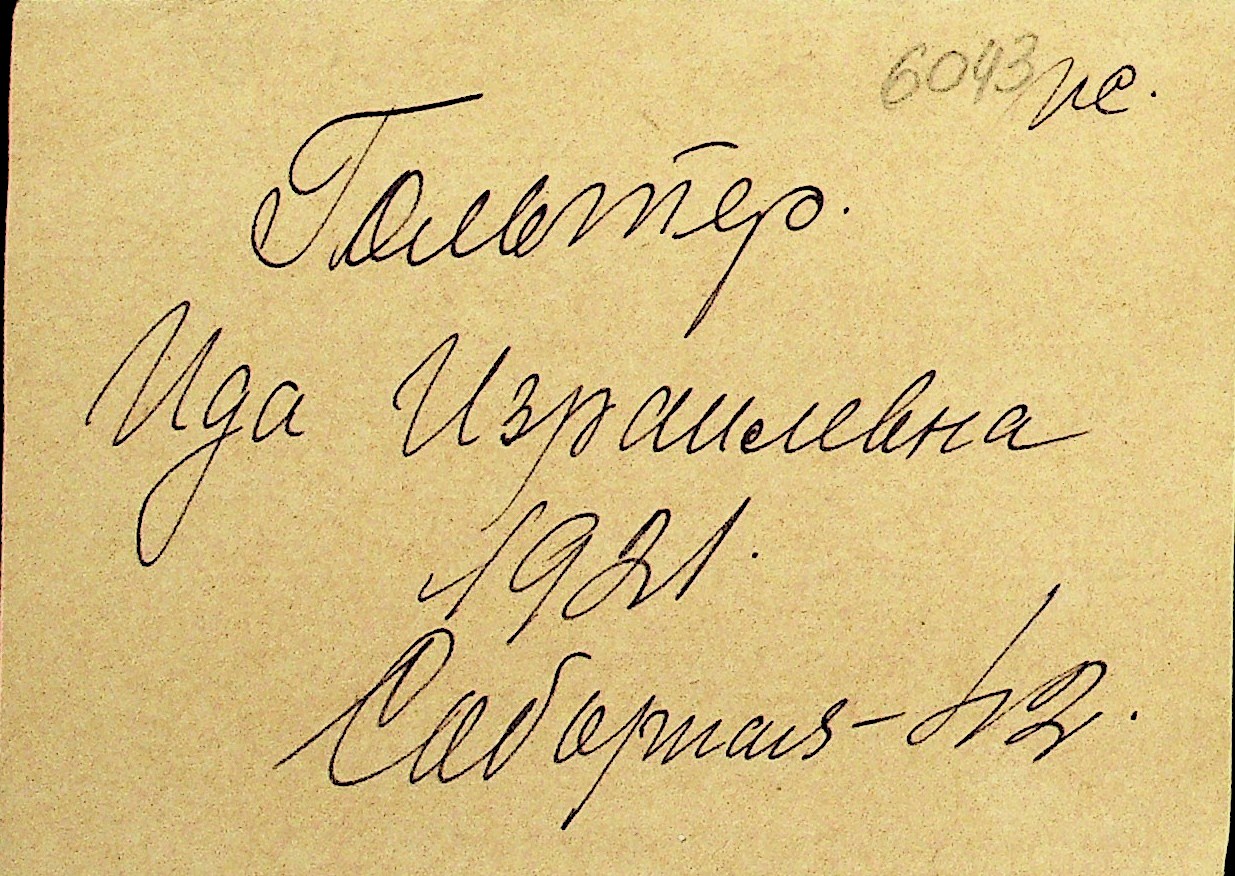 6043
Гольтер.
Ида Израилевна
1921.
Соборная-42.